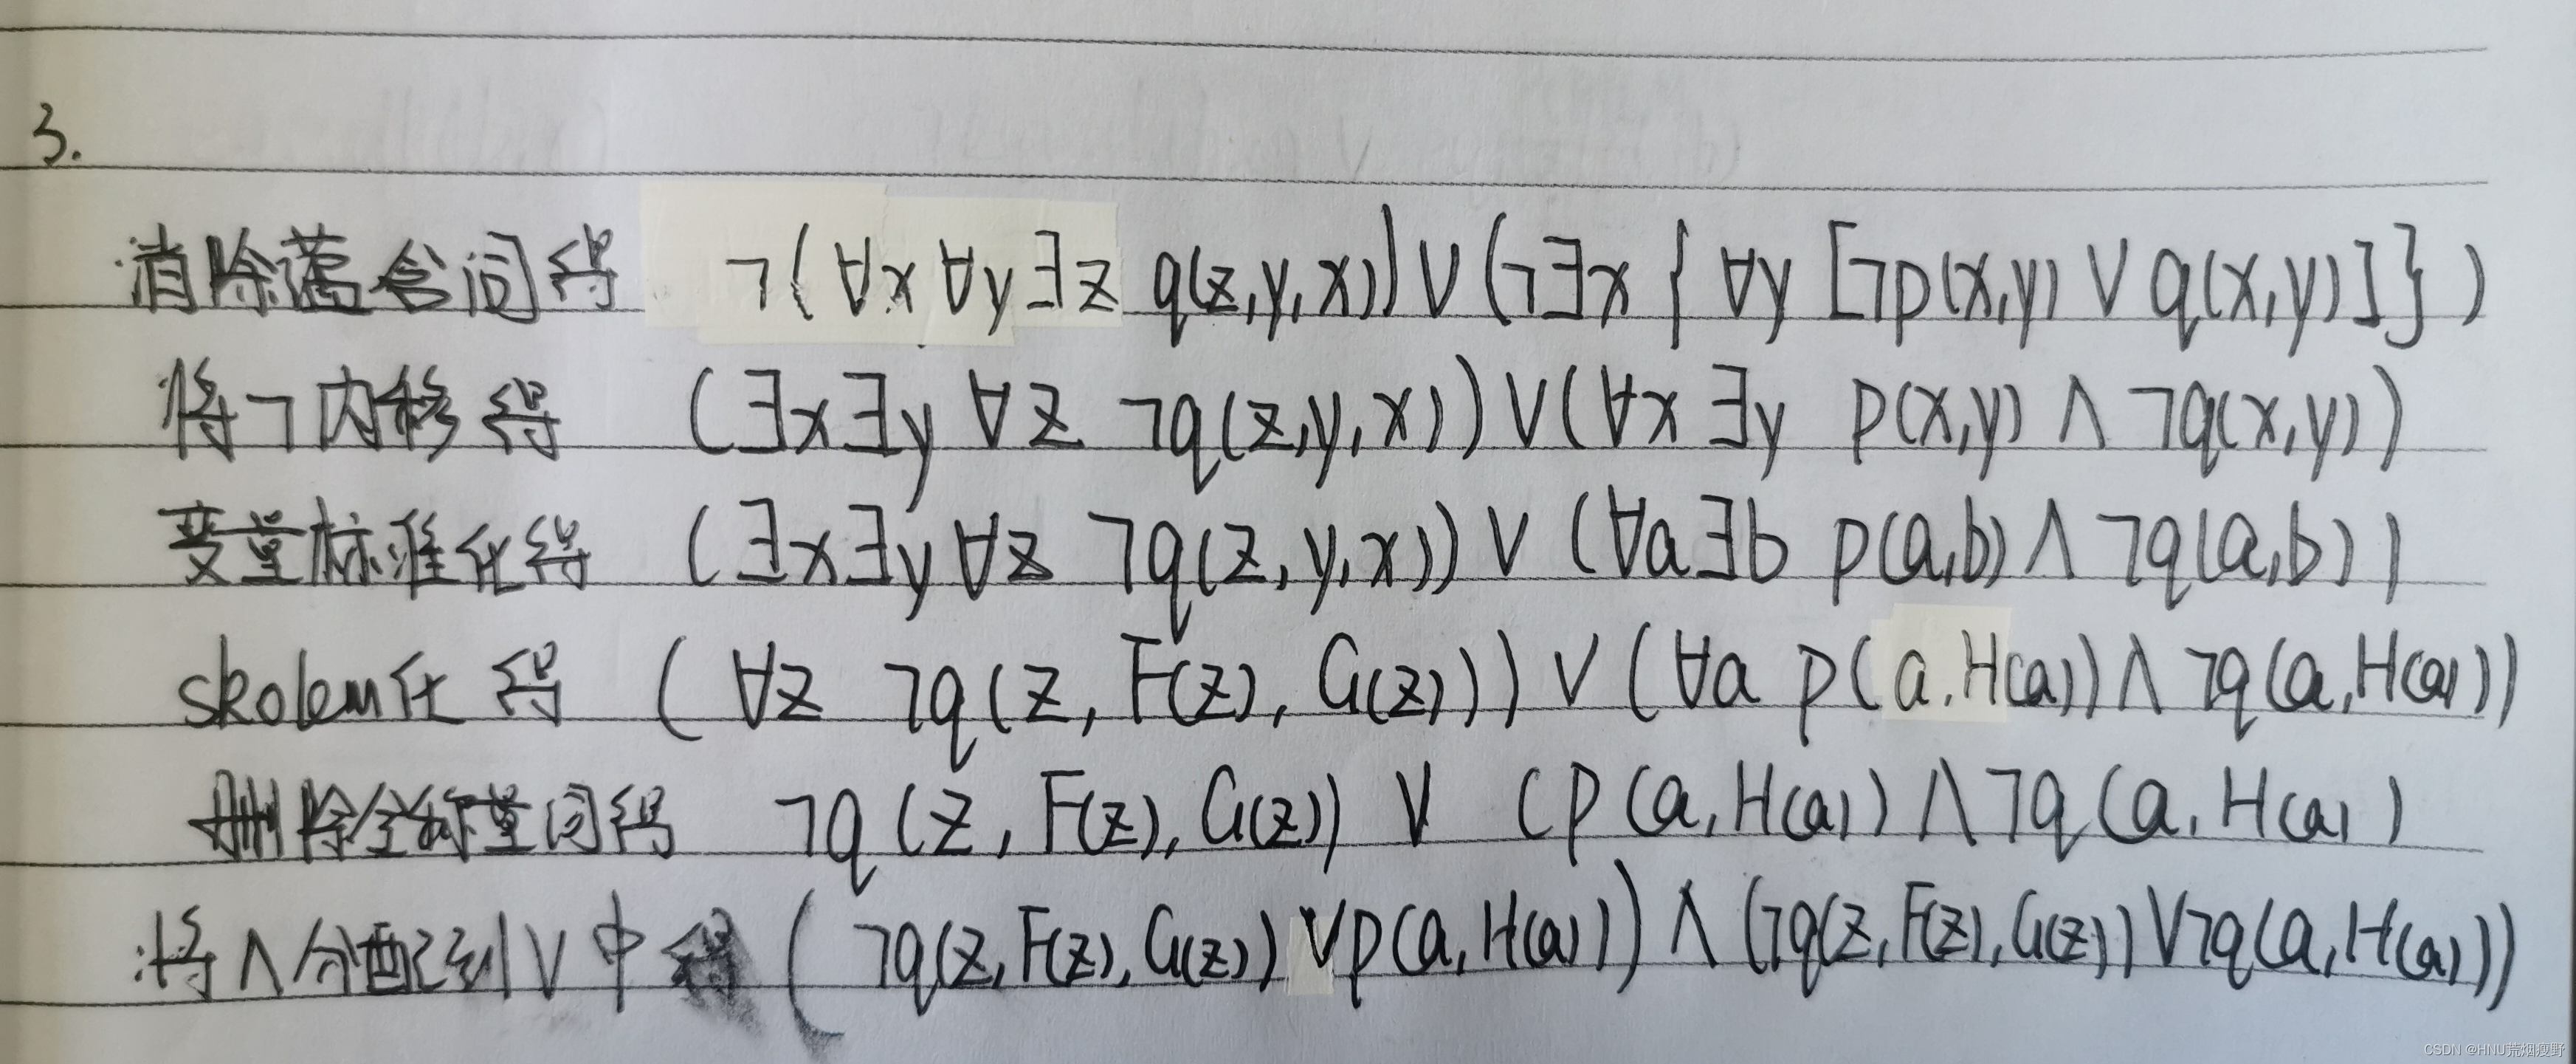 3.
消除蕴含词得 ¬(∀x∀y∃z q(z,y,x))∨(¬∃x{∀y[¬p(x,y)∨q(x,y)]})
将¬内移得 (∃x∃y∀z ¬q(z,y,x))∨(∀x∃y p(x,y)∧¬q(x,y))
变量标准化得 (∃x∃y∀z ¬q(z,y,x))∨(∀a∃b p(a,b)∧¬q(a,b))
skolem化得 (∀z ¬q(z,F(z),G(z)))∨(∀a p(a,H(a))∧¬q(a,H(a))
删除全称量词得 ¬q(z,F(z),G(z))∨(p(a,H(a))∧¬q(a,H(a)
将∧分配到∨中得 (¬q(z,F(z),G(z))∨p(a,H(a)))∧(¬q(z,F(z),G(z))∨¬q(a,H(a)))
CSDN @HNU荒烟瘦野